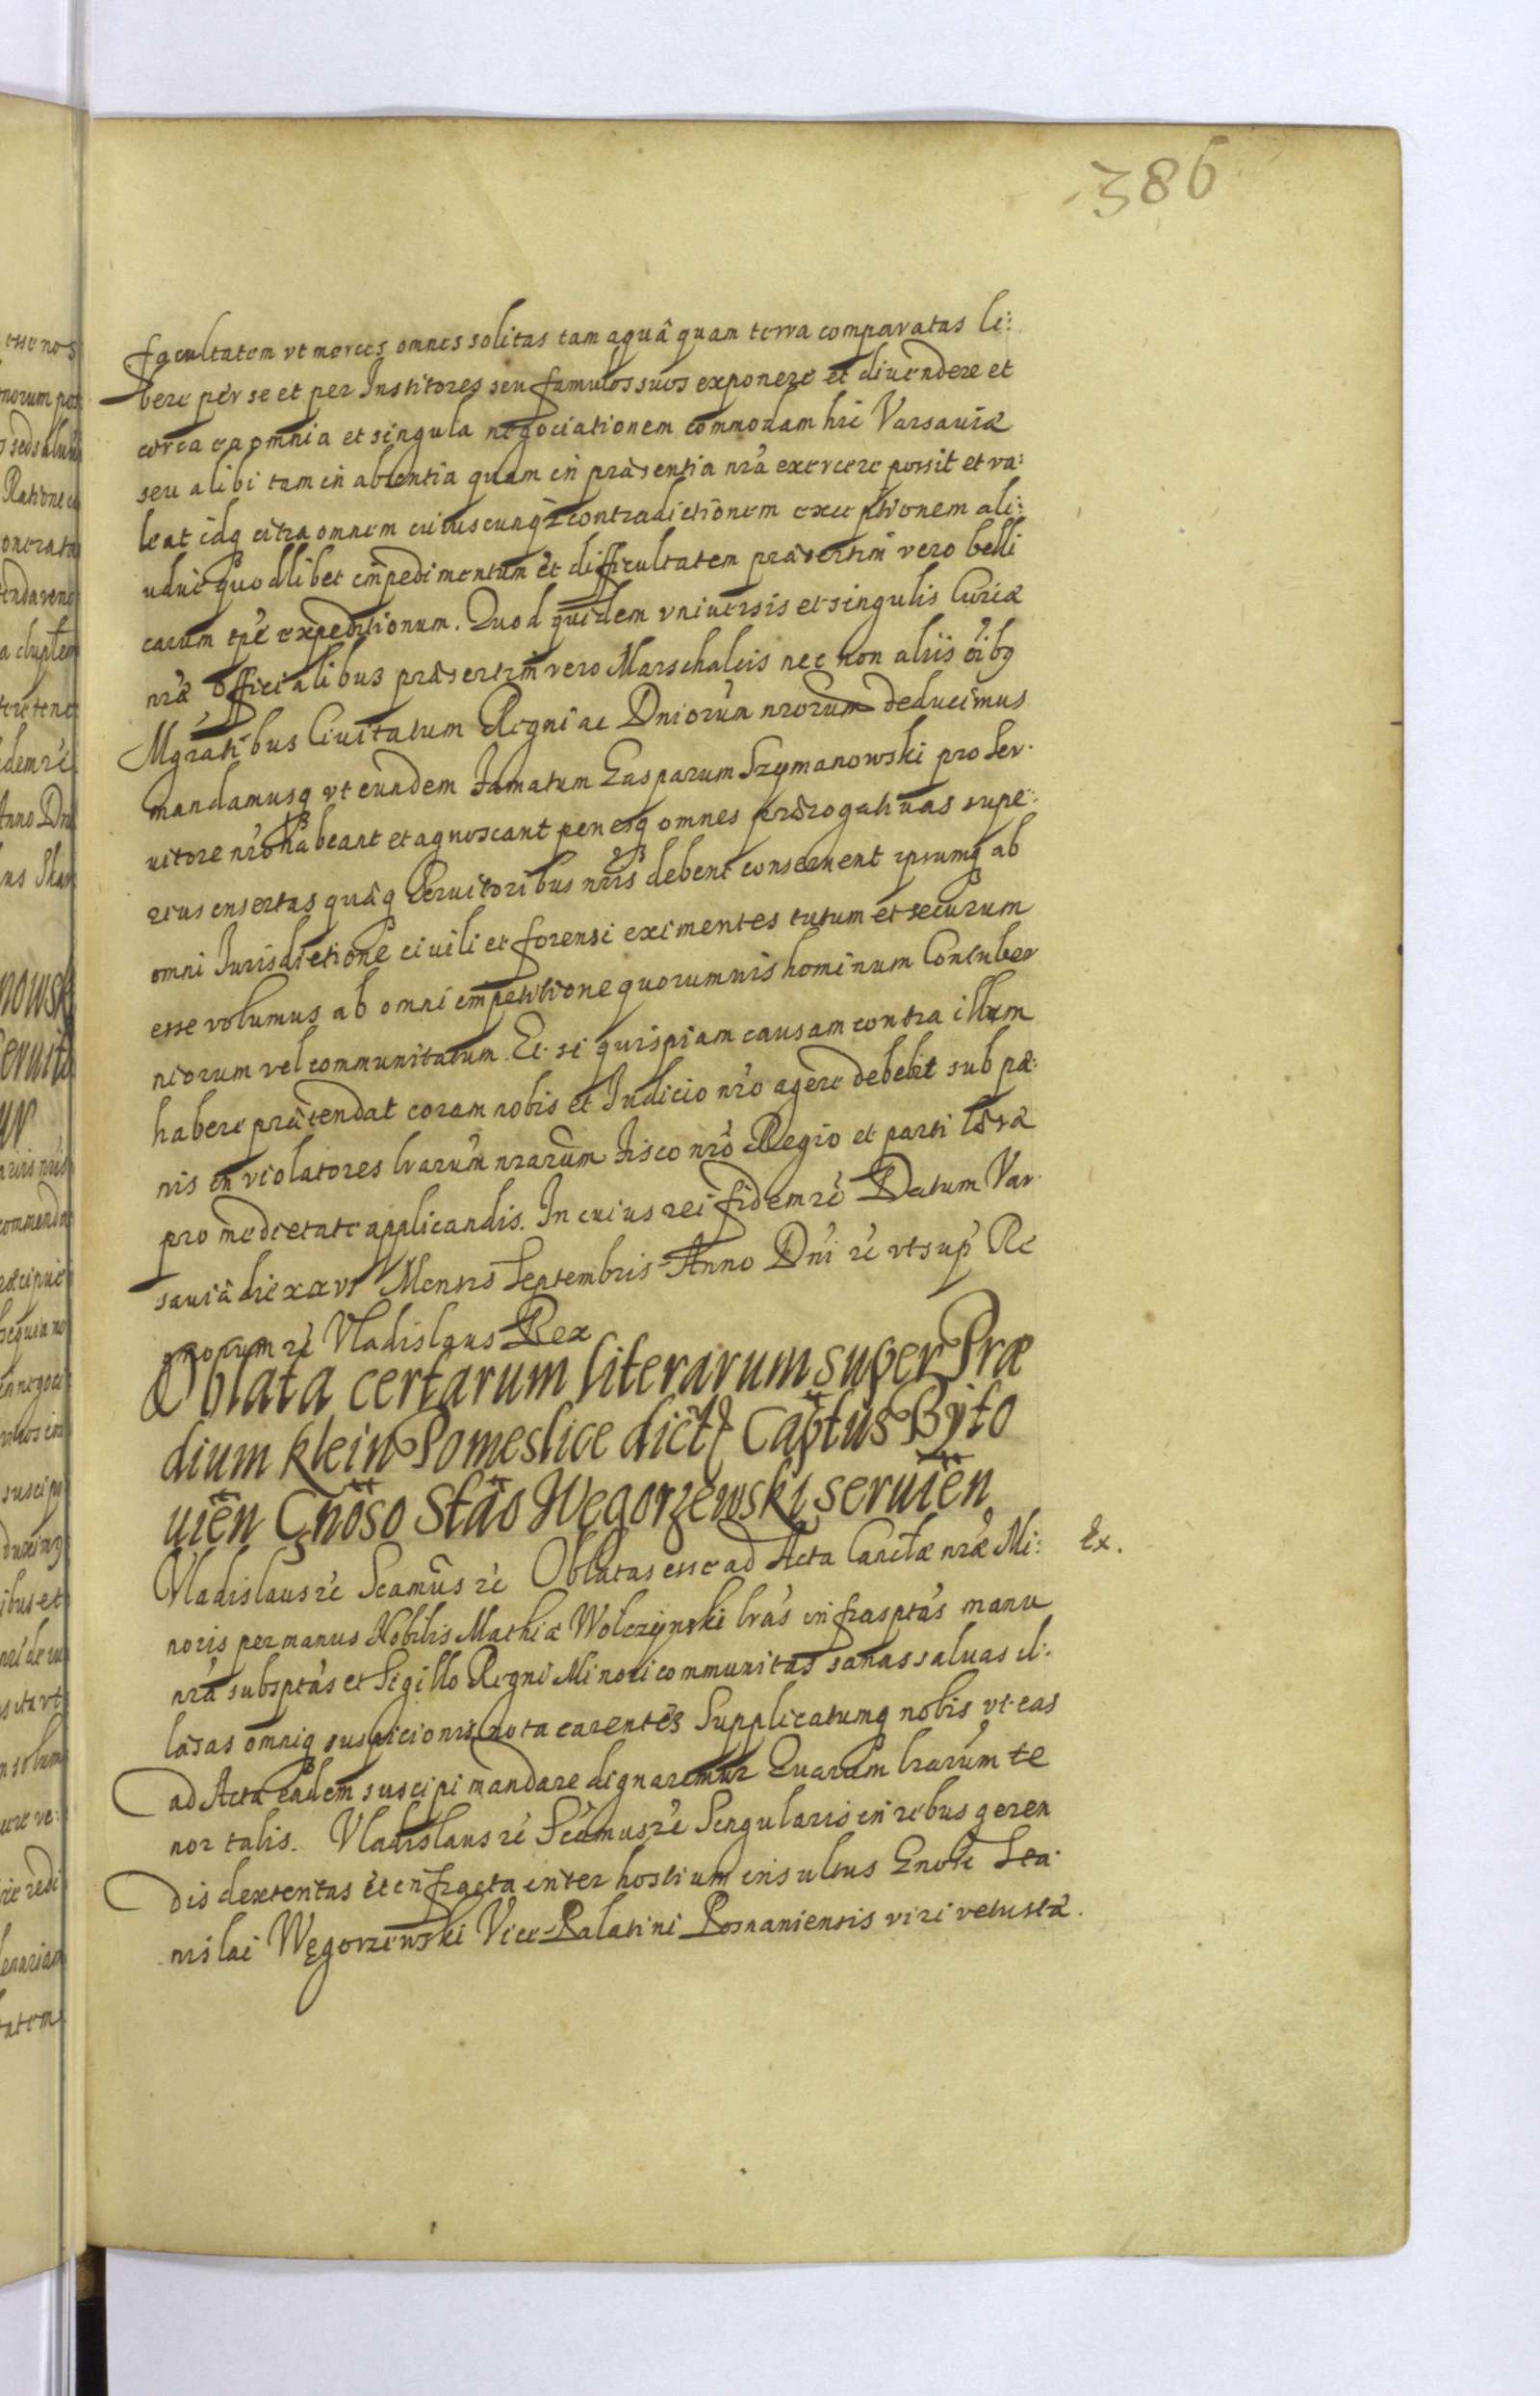 386
facultatem vt merces omnes solitas tam aquâ quam terra comparatas li:
bere per se et per Institores seu famulos suos exponere et divendere et
circa ea omnia et singula negociationem commodam hic Varsaviæ
seu alibi tam in absentia quam in præsentia nr̃a exercere possit et va:
leat idq̃ citra omnem cuiuscunq̃ contradictionem exceptionem ali:
udue quodlibet impedimentum et difficultatem præsertim vero belli
carum tp̃e expeditionum. Quod quidem vniuersis et singulis Curiæ
nr̃æ Officialibus præsertim vero Marschalcis nec non aliis oĩbꝯ
Mgr̃atibus Ciuitatum Regni ac Dniorũm nrorum deducimus
mandamusq̃ vt eundem famatum Casparum Szymanowski pro Ser:
uitore nr̃o habeant et agnoscant penesq̃ omnes prærogatiuas supe:
rius insertas quæq̃ Seruitoribus nr̃is debent conseruent ipsumq̃ ab
omni Jurisdictione ciuili et forensi eximentes tutum et securum
esse volumus ab omni impetitione quorumuis hominum Contuber
niorum vel communitatum. Et si quispiam causam contra illum
habere prætendat coram nobis et Iudicio nr̃o agere debebit sub pæ:
nis in violatores lrarũm nrarũm Fisco nr̃o Regio et parti læsæ
pro medietate applicandis. In cuius rei fidem rẽ Datum Var:
saviæ die xxvi Mensis Septembris Anno Dnĩ rẽ vt sup̃ Re
gnorum rẽ Vladislaus Rex
Oblata certarum literarum super Præ
dium klein Pomeslice dict̃ Cap̃tus Byto
uien̄ Gñoso Stãо Wegorzewski seruien̄
Vladislaus rẽ Scamũs rẽ Oblatas esse ad Acta Canc̃læ nr̃æ Mi:
Ex.
noris per manus Nobilis Mathiæ Wolczynski lrãs infrasptãs manu
nr̃a subsptãs et Sigillo Regni Minori communitas sanas saluas il:
læsas omniq̃ suspicionis nota carentes Supplicatumq̃ nobis vt eas
ad Acta eadem suscipi mandare dignaremur Quarum lrarũm te
nor talis. Vladislaus rẽ Scamus rẽ Singularis in rebus geren
dis dexteritas et infracta inter hostium insultus Gnosĩ Sta:
nislai Węgorzewski Vice-Palatini Posnaniensis viri vetustæ.